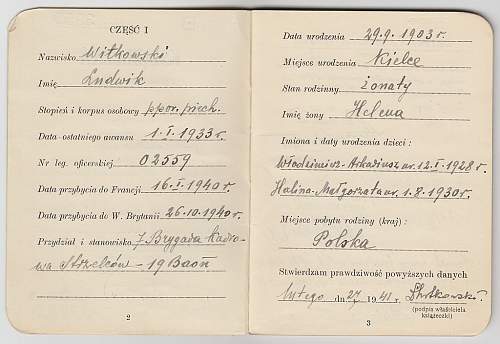 CZĘŚĆ I
Nazwisko Witkowski
Imię Ludwik
Stopień i korpus osobowy ppor. piech.
Data ostatniego awansu 1. I. 1933 r.
Nr leg. oficerskiej 02559
Data przybycia do Francji 16. I. 1940 r.
Data przybycia do W. Brytanii 26.10.1940 r.
Przydział i stanowisko 7 Brygada Kadro-
wa Strzelców – 19 Baon
2
Data urodzenia 29.9.1903 r.
Miejsce urodzenia Kielce
Stan rodzinny żonaty
Imię żony Helena
Imiona i daty urodzenia dzieci :
Włodzimierz-Arkadiusz ur. 12. I. 1928 r.
Halina-Małgorzata ur. 1.8.1930 r.
Miejsce pobytu rodziny (kraj) :
Polska
Stwierdzam prawdziwość powyższych danych
lutego dn 27 1941 r.
(podpis właściciela
książeczki)
3